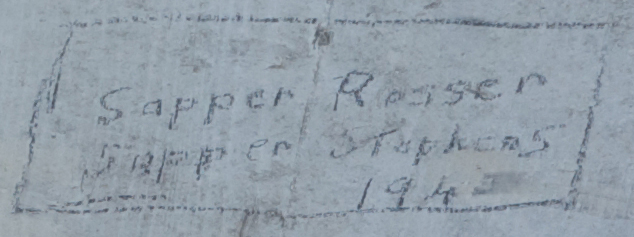 Sapper Rosser
Sapper Stephens
194